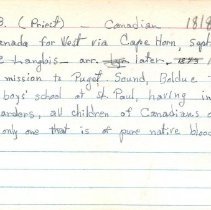 B. (Priest) - Canadian 1818
enada for West via Cape Horn, sept
Langlois - arr. later. 1843
mission to Puget Sound, Bolduc
boys' school at St. Paul, having in
arders, all children of Canadians
only one that is of pure native blood